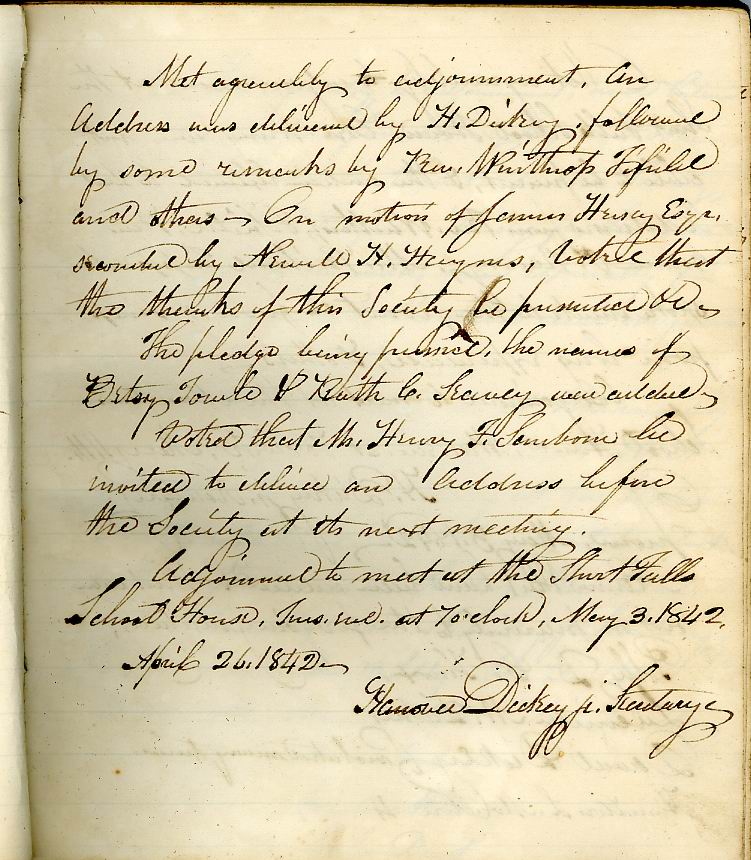 Met agreeably to adjournment. An
Address was delivered by H. Dickey, followed
by some remarks by Rev. Winthrop Fifield
and others – On motion of James Hersey Esqr.
seconded by Newell H. Haynes, Voted that
the thanks of this Society be presented &c –
The pledge being passed, the names of
Betsy Towle & Ruth C. Seavey were added –
Voted that Mr. Henry F. Sanborn be
invited to deliver an Address before
the Society at its next meeting.
Adjourned to meet at the Short Falls
School House, at 7 o'clock, May 3. 1842.
April 26. 1842 –
Hanover Dickey jr. Secretary